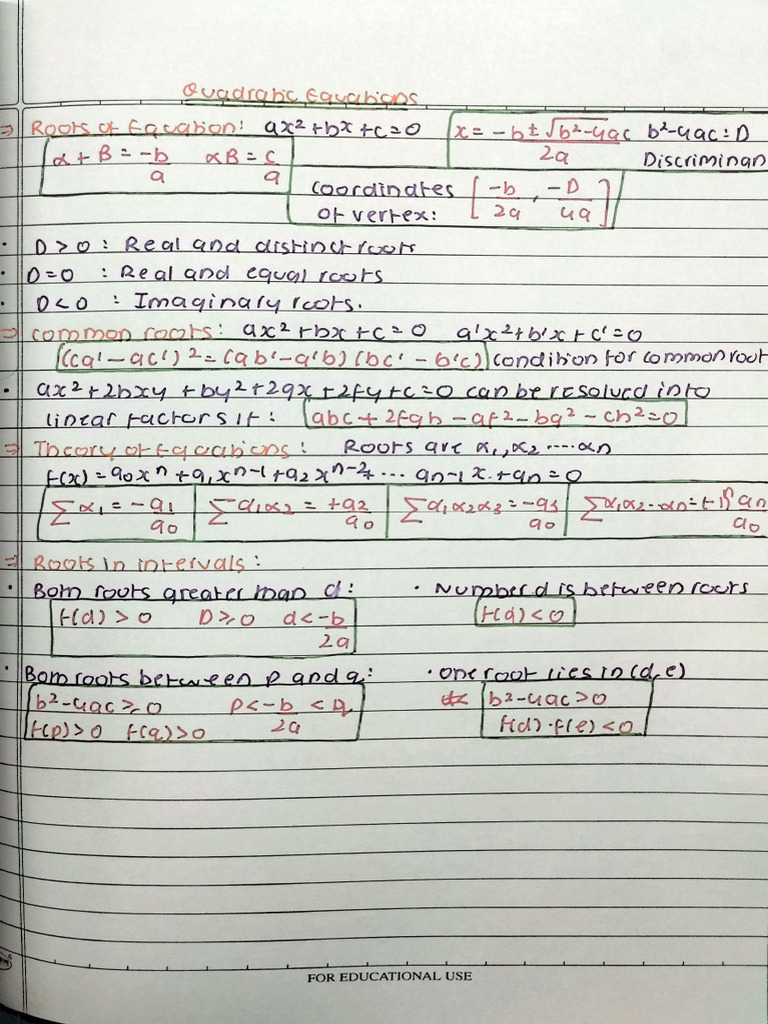 Quadratic Equations
⇒ Roots of Equation: ax²+bx+c=0 x = -b ± √b²-4ac / 2a b²-4ac = D
Discriminan
α + β = -b/a αβ = c/a
coordinates of vertex: [-b/2a, -D/4a]
• D > 0 : Real and distinct roots
• D = 0 : Real and equal roots
• D < 0 : Imaginary roots.
⇒ common roots: ax² + bx + c = 0 a'x²+b'x+c'=0
(ca' - ac')² = (ab' - a'b) (bc' - b'c) condition for common root
• ax² + 2hxy + by² + 2gx + 2fy + c = 0 can be resolved into
linear factors if : abc + 2fgh - af² - bg² - ch² = 0
⇒ Theory of Equations : Roots are α₁, α₂ ..... αn
f(x) = a₀xⁿ + a₁xⁿ⁻¹ + a₂xⁿ⁻² + ... an-1 x. + an = 0
∑α₁ = -a₁/a₀ ∑α₁α₂ = +a₂/a₀ ∑α₁α₂α₃ = -a₃/a₀ ∑α₁α₂..αn = (-1)ⁿ an/a₀
⇒ Roots in intervals :
• Both roots greater than d : • Number d is between roots
f(d) > 0 D ≥ 0 d < -b/2a f(d) < 0
• Both roots between p and q : • One root lies in (d,e)
b²-4ac ≥ 0 p < -b/2a < q b²-4ac > 0
f(p) > 0 f(q) > 0 f(d) · f(e) < 0
FOR EDUCATIONAL USE